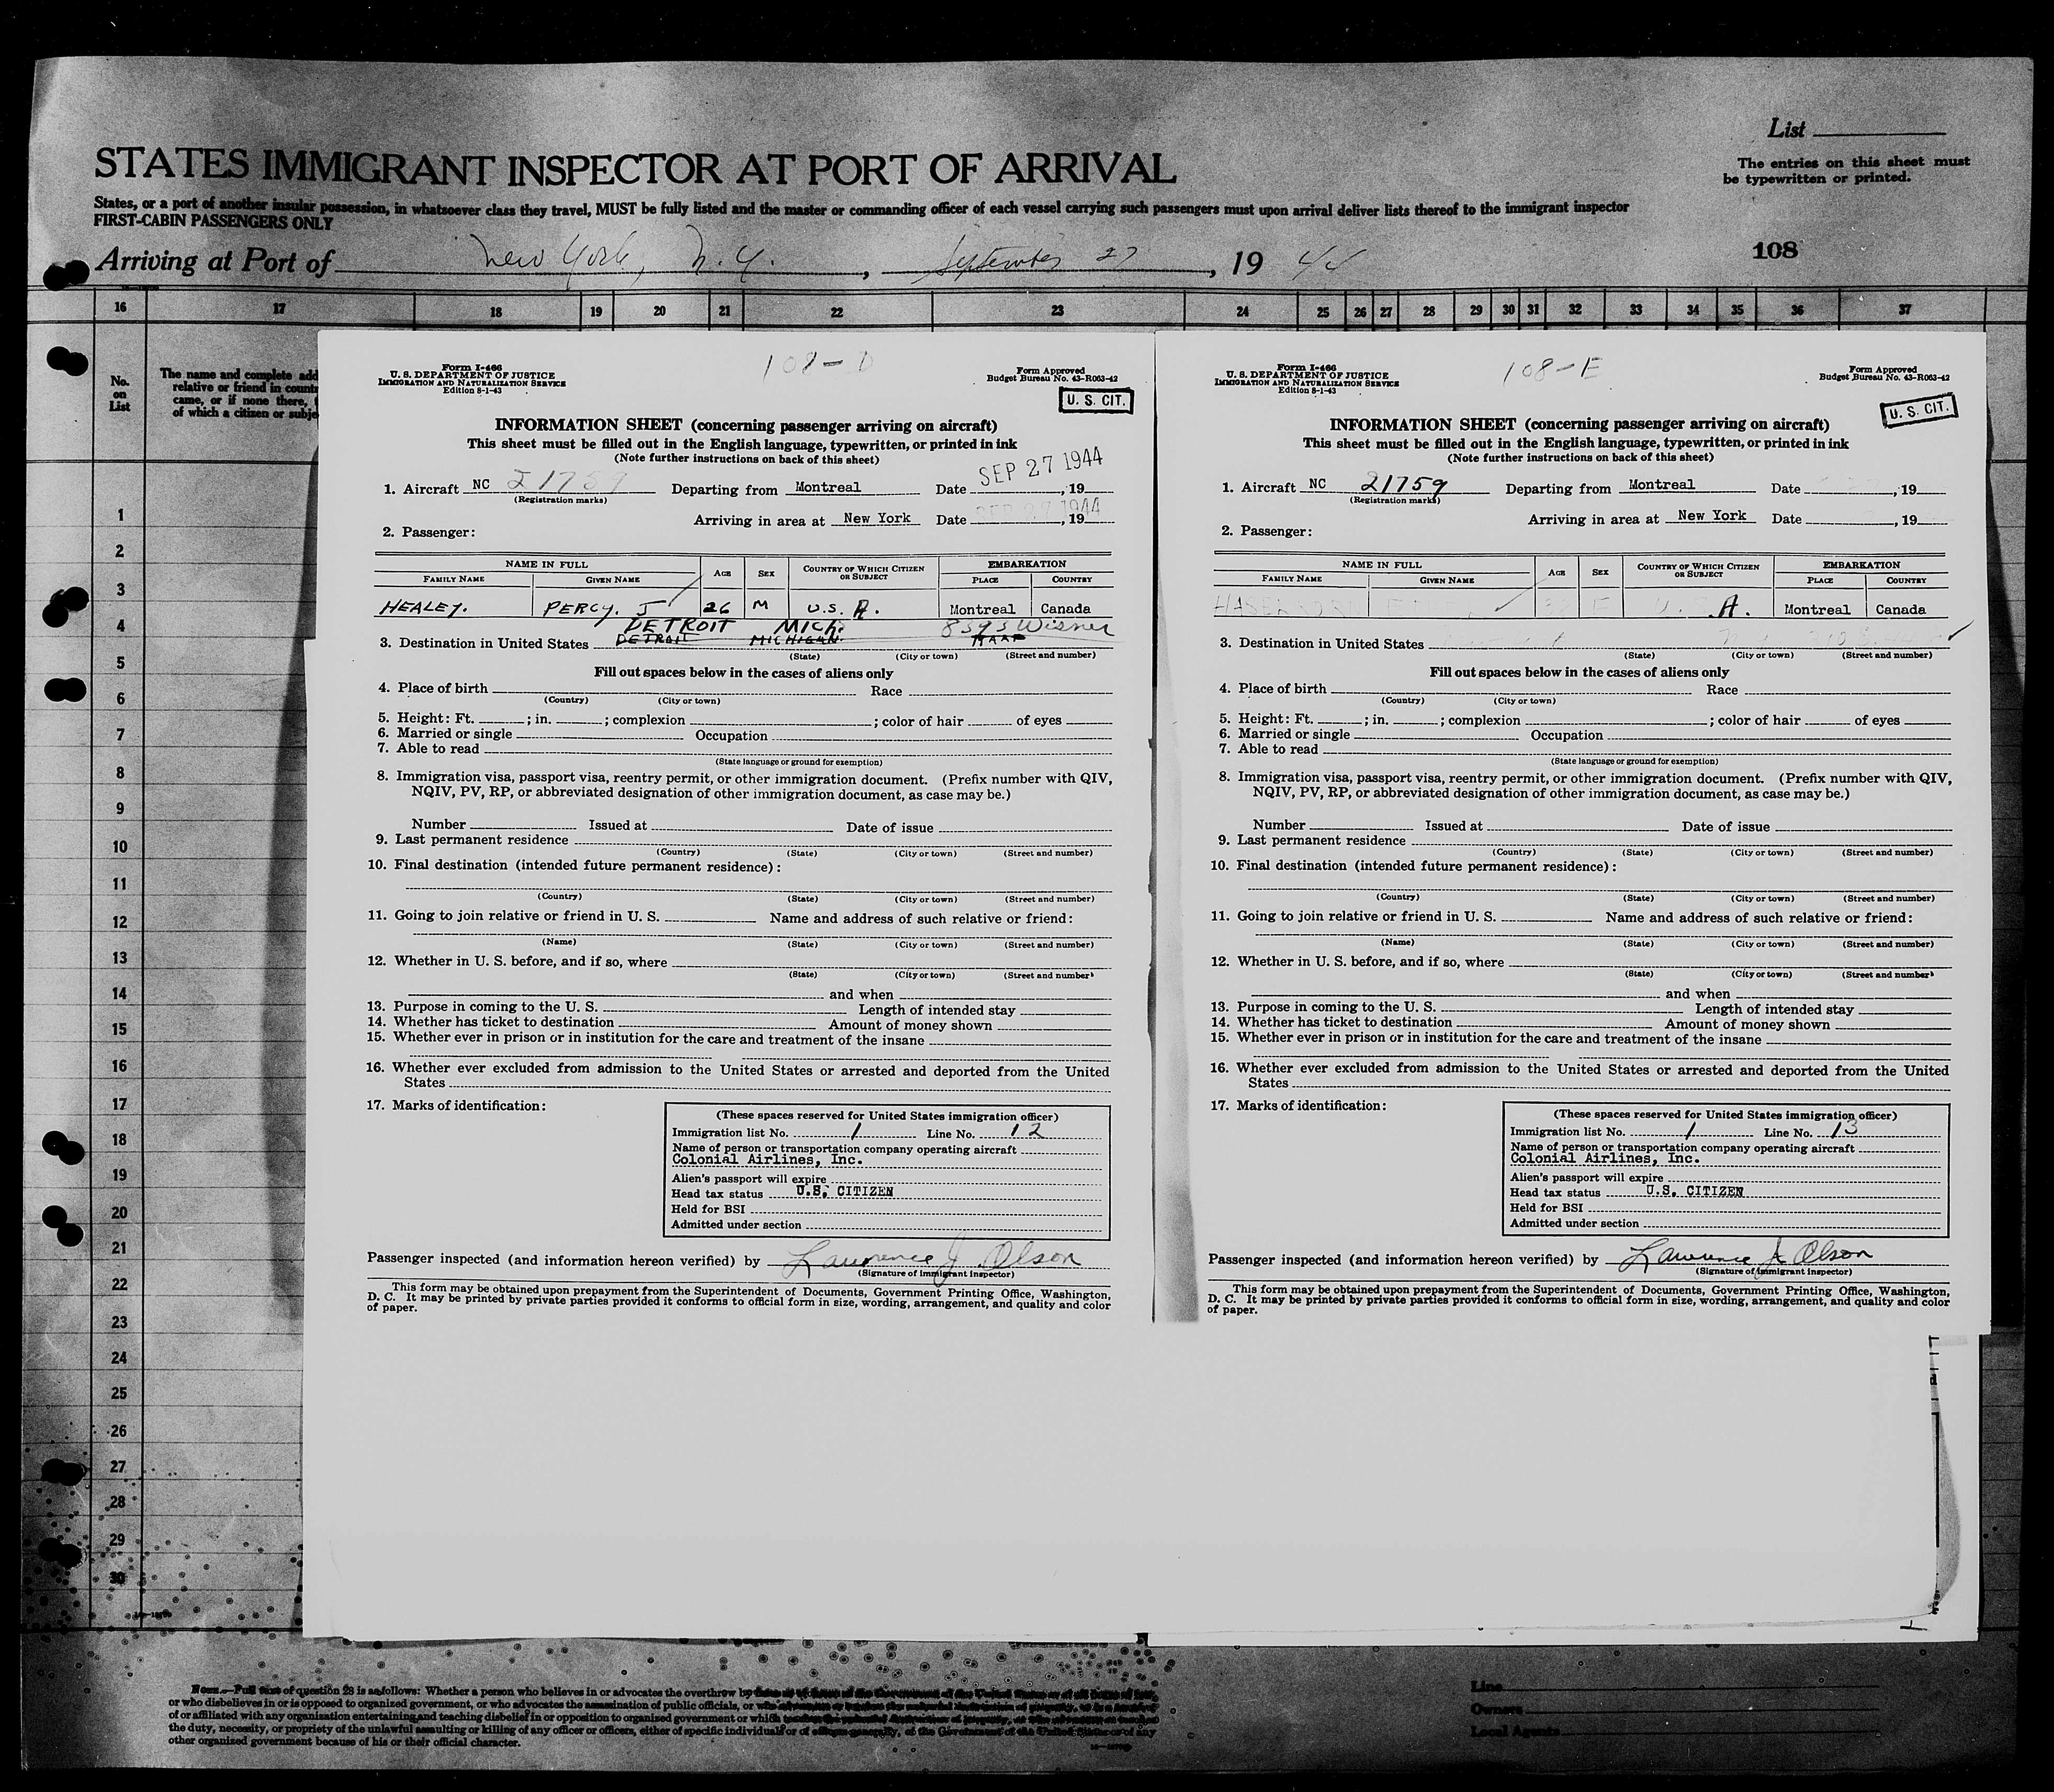 List
STATES IMMIGRANT INSPECTOR AT PORT OF ARRIVAL
The entries on this sheet must
be typewritten or printed.
States, or a port of another insular possession, in whatsoever class they travel, MUST be fully listed and the master or commanding officer of each vessel carrying such passengers must upon arrival deliver lists thereof to the immigrant inspector
FIRST-CABIN PASSENGERS ONLY
Arriving at Port of New York, N.Y., September 27, 19 44
108
16 17 18 19 20 21 22 23 24 25 26 27 28 29 30 31 32 33 34 35 36 37
No.
on
List
The name and complete add
relative or friend in count
came, or if none there,
of which a citizen or subje
1
2
3
4
5
6
7
8
9
10
11
12
13
14
15
16
17
18
19
20
21
22
23
24
25
26
27
28
29
30
108-D
Form I-466
U. S. DEPARTMENT OF JUSTICE
IMMIGRATION AND NATURALIZATION SERVICE
Edition 8-1-43
Form Approved
Budget Bureau No. 43-R063-42
U. S. CIT.
INFORMATION SHEET (concerning passenger arriving on aircraft)
This sheet must be filled out in the English language, typewritten, or printed in ink
(Note further instructions on back of this sheet)
SEP 27 1944
1. Aircraft NC 21759 Departing from Montreal Date , 19
(Registration marks)
SEP 27 1944
Arriving in area at New York Date , 19
2. Passenger:
NAME IN FULL AGE SEX COUNTRY OF WHICH CITIZEN OR SUBJECT EMBARKATION
FAMILY NAME GIVEN NAME PLACE COUNTRY
HEALEY. PERCY. J 26 M U.S. A. Montreal Canada
DETROIT MICH. 8595 Wisner
3. Destination in United States DETROIT MICHIGAN.
(State) (City or town) (Street and number)
Fill out spaces below in the cases of aliens only
4. Place of birth Race
(Country) (City or town)
5. Height: Ft. ; in. ; complexion ; color of hair of eyes
6. Married or single Occupation
7. Able to read
(State language or ground for exemption)
8. Immigration visa, passport visa, reentry permit, or other immigration document. (Prefix number with QIV,
NQIV, PV, RP, or abbreviated designation of other immigration document, as case may be.)
Number Issued at Date of issue
9. Last permanent residence
(Country) (State) (City or town) (Street and number)
10. Final destination (intended future permanent residence):
(Country) (State) (City or town) (Street and number)
11. Going to join relative or friend in U. S. Name and address of such relative or friend:
(Name) (State) (City or town) (Street and number)
12. Whether in U. S. before, and if so, where
(State) (City or town) (Street and number)
and when
13. Purpose in coming to the U. S. Length of intended stay
14. Whether has ticket to destination Amount of money shown
15. Whether ever in prison or in institution for the care and treatment of the insane
16. Whether ever excluded from admission to the United States or arrested and deported from the United
States
17. Marks of identification:
(These spaces reserved for United States immigration officer)
Immigration list No. 1 Line No. 12
Name of person or transportation company operating aircraft
Colonial Airlines, Inc.
Alien's passport will expire
Head tax status U.S. CITIZEN
Held for BSI
Admitted under section
Passenger inspected (and information hereon verified) by Lawrence J. Olson
(Signature of Immigrant Inspector)
This form may be obtained upon prepayment from the Superintendent of Documents, Government Printing Office, Washington,
D. C. It may be printed by private parties provided it conforms to official form in size, wording, arrangement, and quality and color
of paper.
108-E
Form I-466
U. S. DEPARTMENT OF JUSTICE
IMMIGRATION AND NATURALIZATION SERVICE
Edition 8-1-43
Form Approved
Budget Bureau No. 43-R063-42
U. S. CIT.
INFORMATION SHEET (concerning passenger arriving on aircraft)
This sheet must be filled out in the English language, typewritten, or printed in ink
(Note further instructions on back of this sheet)
1. Aircraft NC 21759 Departing from Montreal Date , 19
(Registration marks)
Arriving in area at New York Date , 19
2. Passenger:
NAME IN FULL AGE SEX COUNTRY OF WHICH CITIZEN OR SUBJECT EMBARKATION
FAMILY NAME GIVEN NAME PLACE COUNTRY
F U. A. Montreal Canada
3. Destination in United States
(State) (City or town) (Street and number)
Fill out spaces below in the cases of aliens only
4. Place of birth Race
(Country) (City or town)
5. Height: Ft. ; in. ; complexion ; color of hair of eyes
6. Married or single Occupation
7. Able to read
(State language or ground for exemption)
8. Immigration visa, passport visa, reentry permit, or other immigration document. (Prefix number with QIV,
NQIV, PV, RP, or abbreviated designation of other immigration document, as case may be.)
Number Issued at Date of issue
9. Last permanent residence
(Country) (State) (City or town) (Street and number)
10. Final destination (intended future permanent residence):
(Country) (State) (City or town) (Street and number)
11. Going to join relative or friend in U. S. Name and address of such relative or friend:
(Name) (State) (City or town) (Street and number)
12. Whether in U. S. before, and if so, where
(State) (City or town) (Street and number)
and when
13. Purpose in coming to the U. S. Length of intended stay
14. Whether has ticket to destination Amount of money shown
15. Whether ever in prison or in institution for the care and treatment of the insane
16. Whether ever excluded from admission to the United States or arrested and deported from the United
States
17. Marks of identification:
(These spaces reserved for United States immigration officer)
Immigration list No. 1 Line No. 13
Name of person or transportation company operating aircraft
Colonial Airlines, Inc.
Alien's passport will expire
Head tax status U.S. CITIZEN
Held for BSI
Admitted under section
Passenger inspected (and information hereon verified) by Lawrence J. Olson
(Signature of Immigrant Inspector)
This form may be obtained upon prepayment from the Superintendent of Documents, Government Printing Office, Washington,
D. C. It may be printed by private parties provided it conforms to official form in size, wording, arrangement, and quality and color
of paper.
NOTE.—Full text of question 28 is as follows: Whether a person who believes in or advocates the overthrow by
or who disbelieves in or is opposed to organized government, or who advocates the assassination of public officials, or who
of or affiliated with any organization entertaining and teaching disbelief in or opposition to organized government or which
the duty, necessity, or propriety of the unlawful assaulting or killing of any officer or officers, either of specific individuals or of officers generally, of the Government of the United States or of any
other organized government because of his or their official character.
Line
Owners
Local Agents